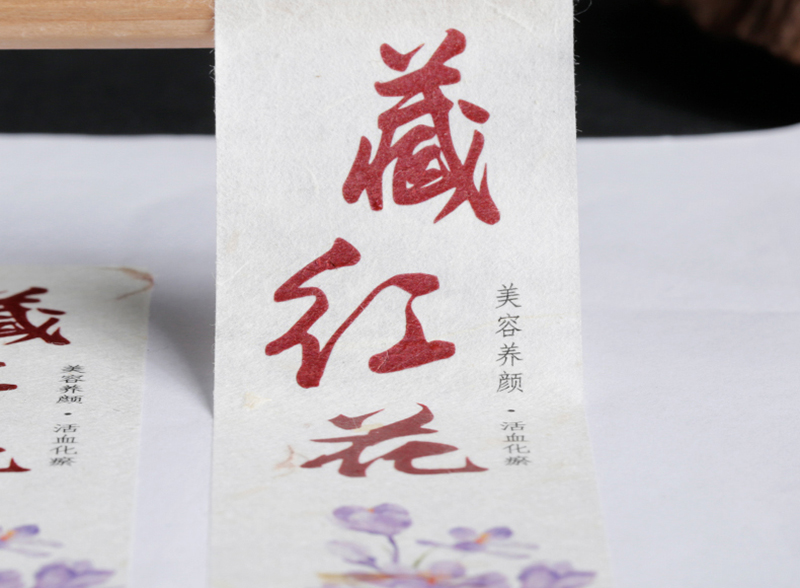 藏红花
美容养颜·活血化瘀
藏
美容养颜·活血化瘀